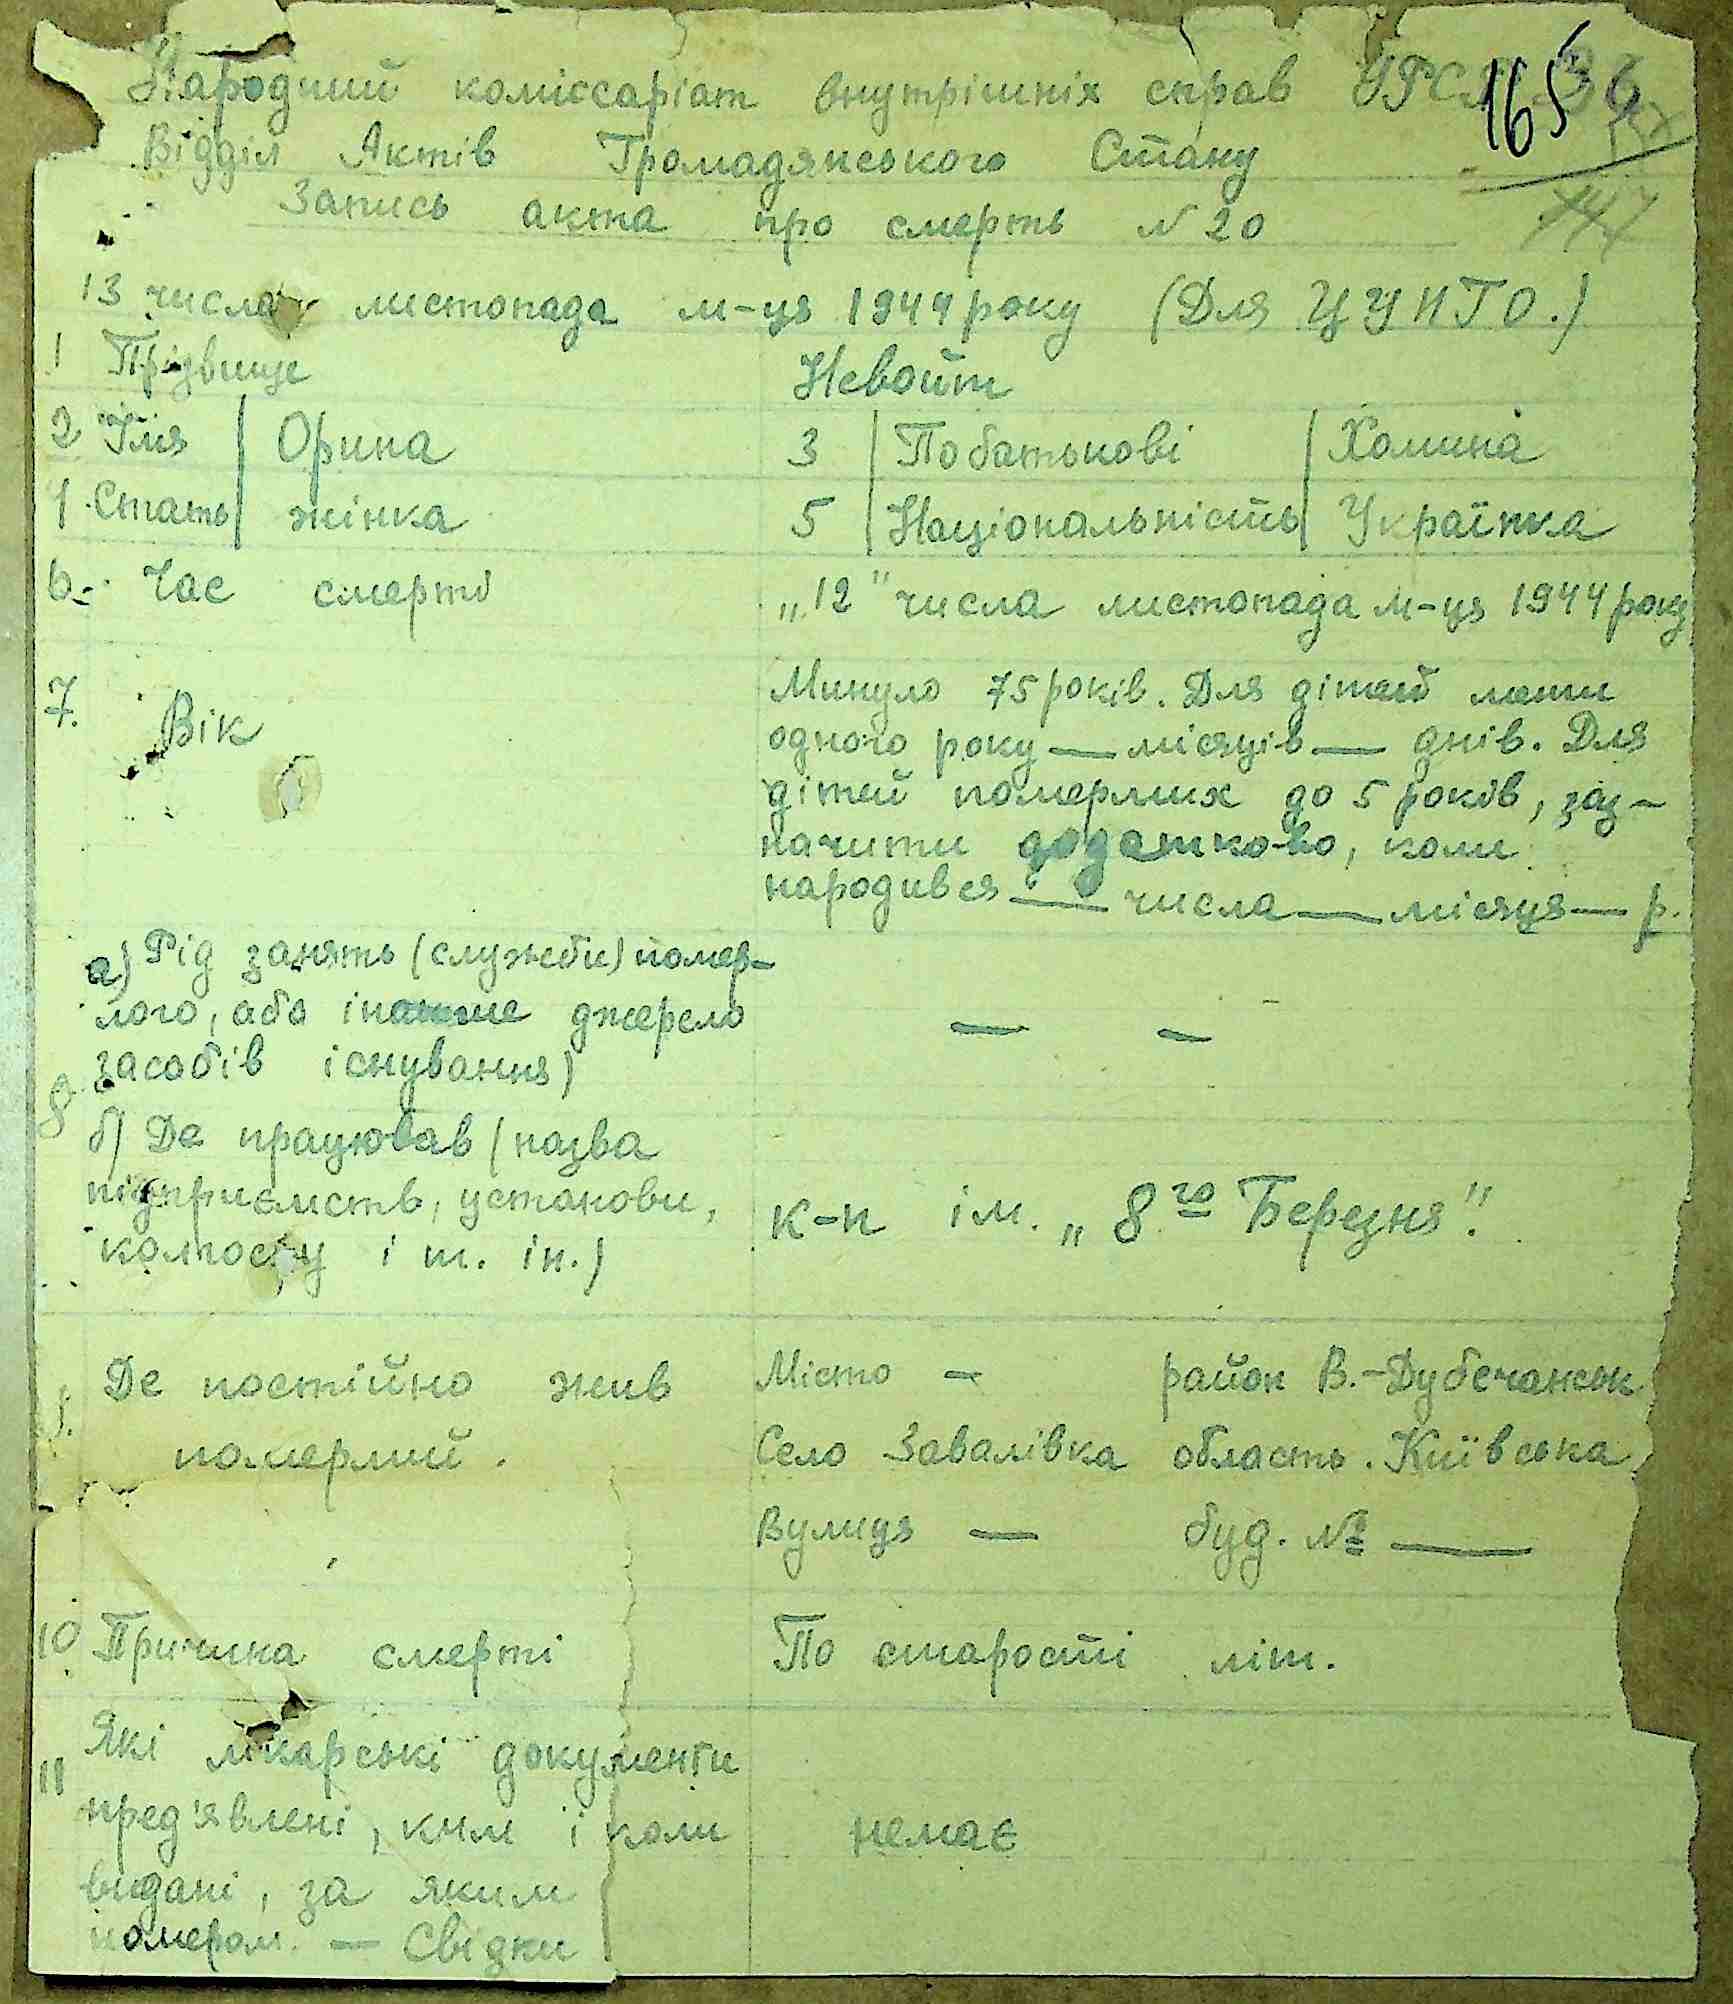 Народний коміссаріат внутрішніх справ УРСР 165
Відділ Актів Громадянського Стану
Запись акта про смерть N 20
13 числа листопада м-ця 1944 року (Для ЦУНГО.)
1 Прізвище Невойт
2 Імя Орина 3 Побатькові Хомина
4 Стать жінка 5 Національність Українка
6. Час смерті „12" числа листопада м-ця 1944 року
7. Вік Минуло 75 років. Для дітей мети
одного року — місяців — днів. Для
дітей померлих до 5 років, заз-
начити додатково, коли
народився — числа — місяця — р.
а) Рід занять (служби) помер-
лого, або інакше джерело
засобів існування) — —
8
б) Де працював (назва
підприємств, установи,
колгоспу і т. ін.) к-п ім. „8го Березня".
9. Де постійно жив Місто — район В.-Дубечанськ
померлий. Село Завалівка область. Київська
Вулиця — буд. № —
10 Причина смерті По старості літ.
11 Які лікарські документи
пред'явлені, ким і коли немає
видані, за яким
номером. — Свідки